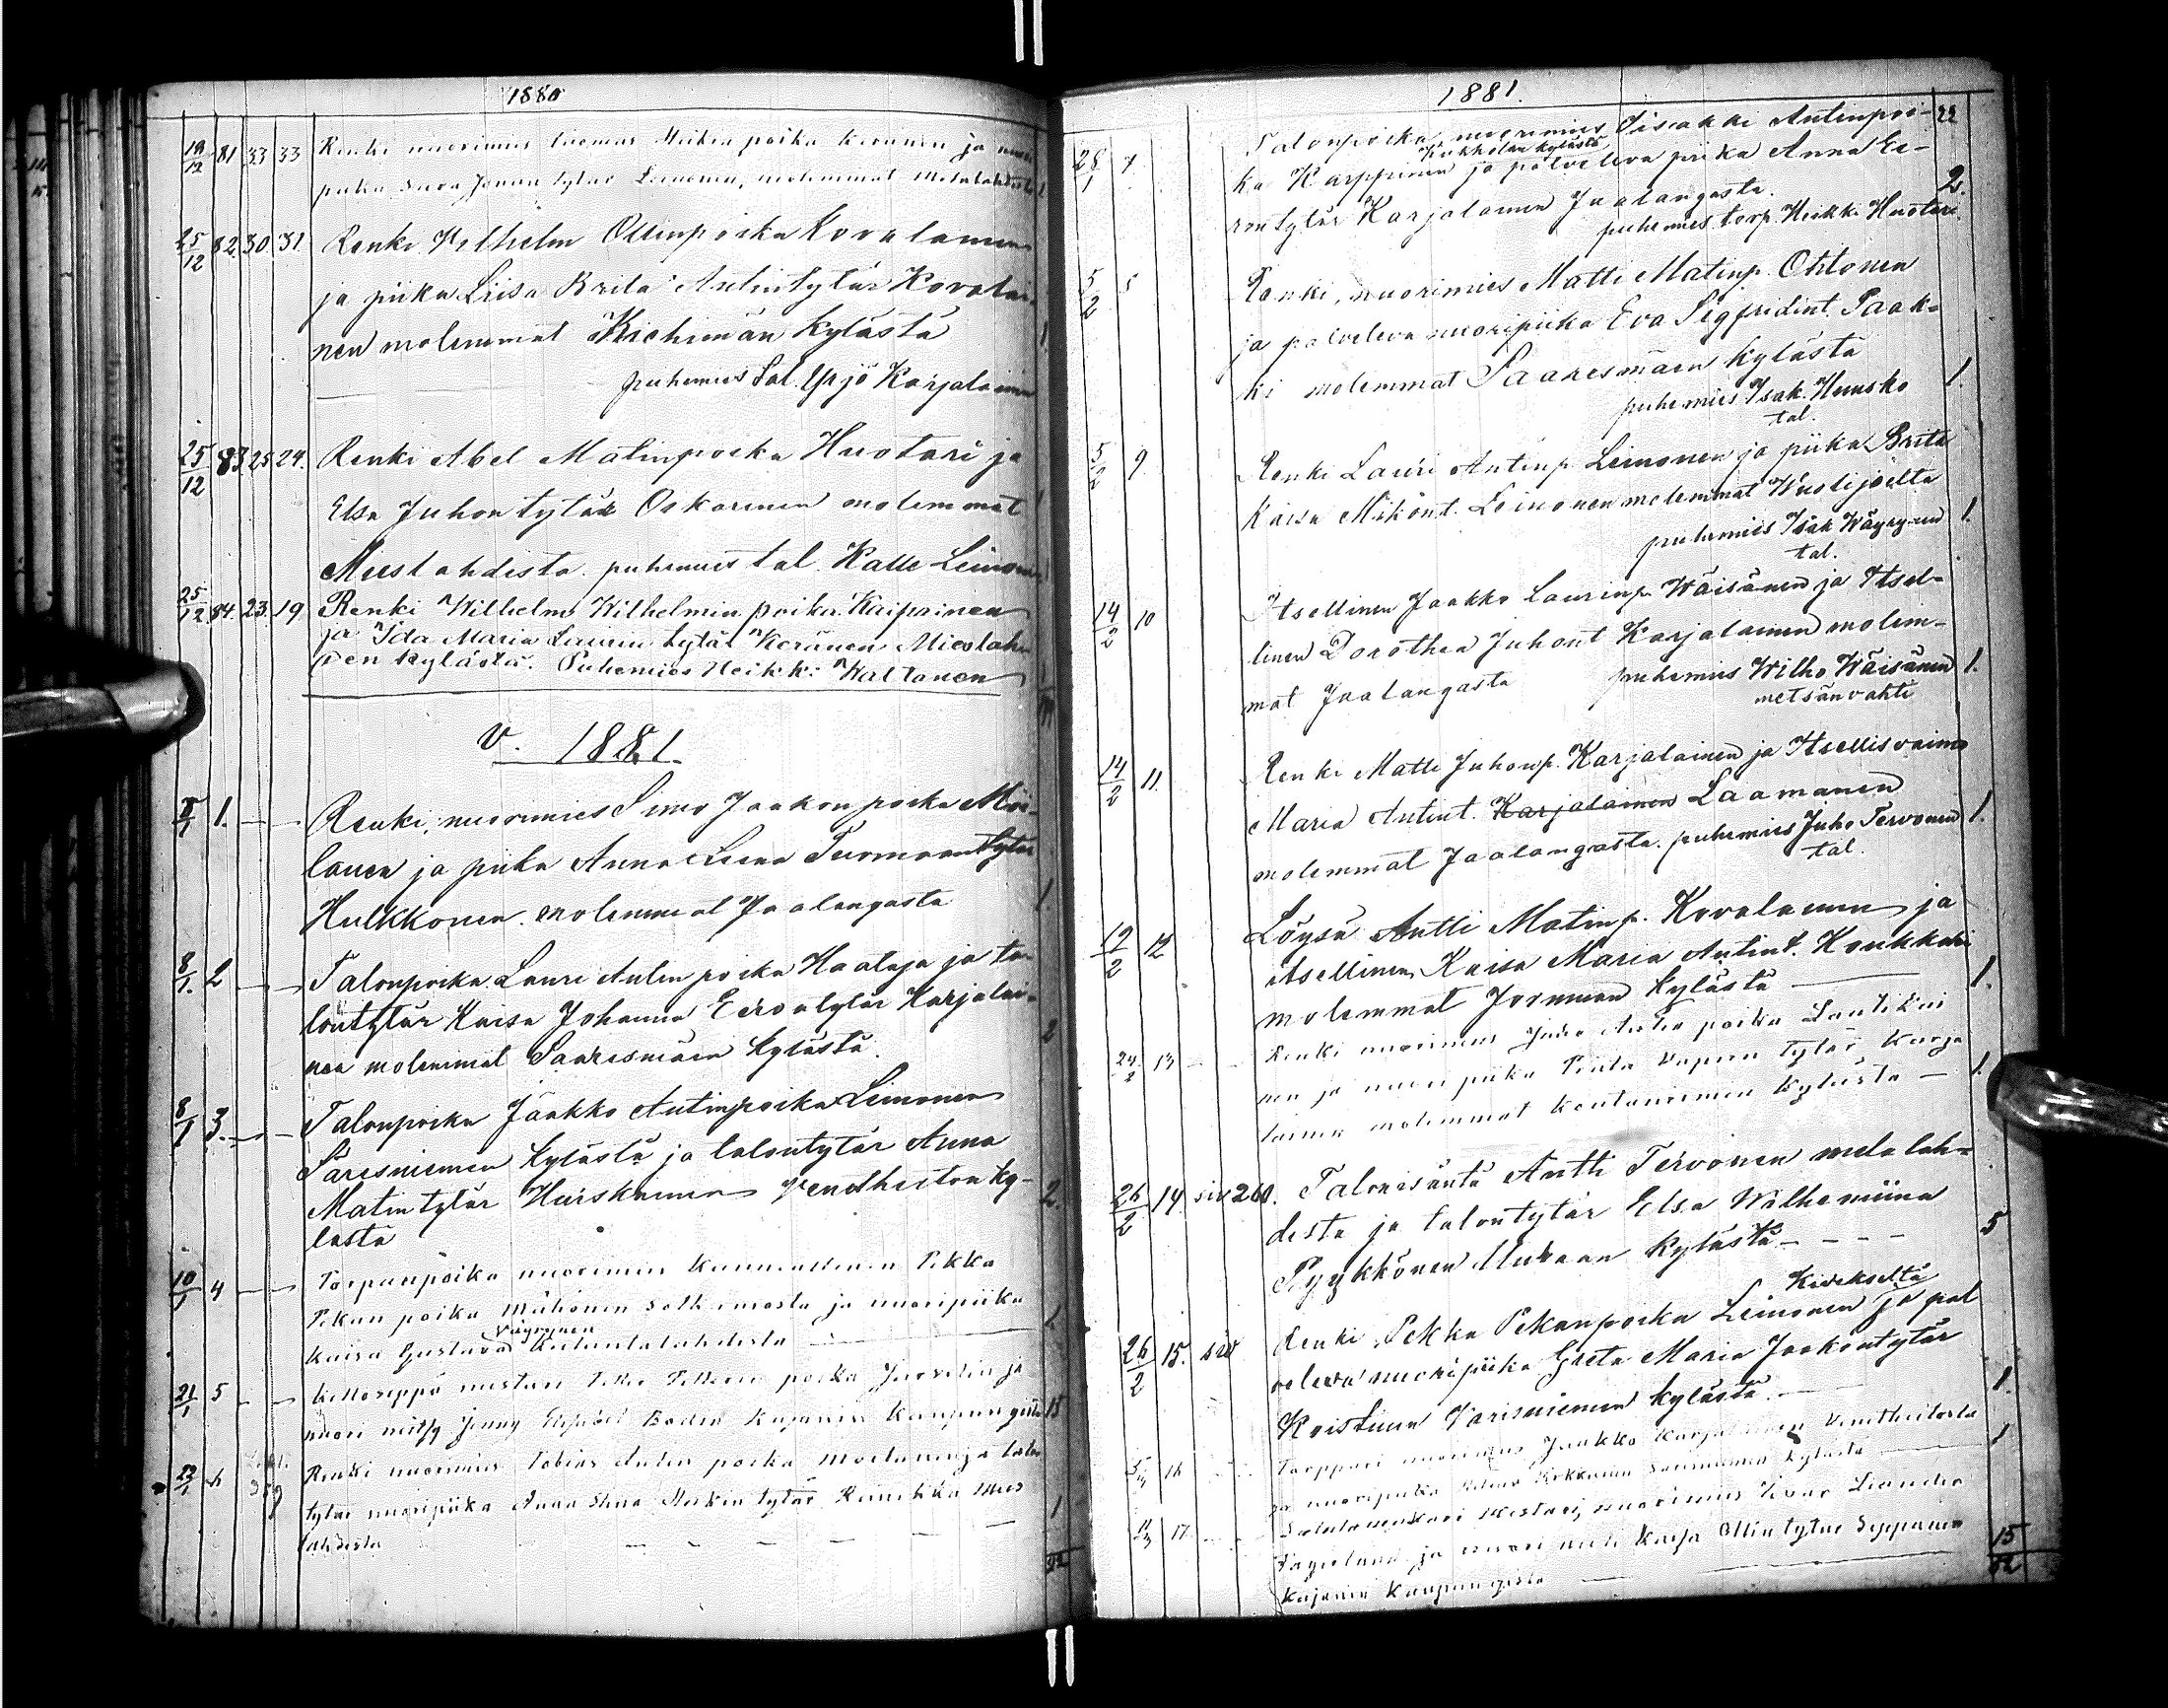 1880
19/12 81 33 33 Renki nuorimies Tuomas Heikin poika Keränen ja nuori
piika Juhon tytär Leinonen, molemmat Melalahdesta
25/12 82. 30. 31. Renki Wilhelm Ollinpoika Kovalainen
ja piika Liisa Brita Antintytär Kovalai-
nen molemmat Kiehimän kylästä 1
puhemies tal. Yrjö Karjalainen
25/12 83 25 24. Renki Abel Matinpoika Huotari ja
Elsa Juhontytär Oskarinen molemmat 1
Mieslahdista. puhemies tal. Kalle Leinonen
25/12 84. 23. 19 Renki Wilhelm Wilhelmin poika Kaipainen
ja Ida Maria Laurin tytär Keränen Mieslah-
den kylästä. Puhemies Heikki Waltanen
v. 1881.
1. Renki, nuorimies Simo Jaakonpoika Moi-
lanen ja piika Anna Leena Tuomaantytär
Hulkkonen. molemmat Jaalangasta 1
8/1. 2 Talonpoika Lauri Antinpoika Haataja ja ta-
lontytär Kaisa Johanna Eerontytär Karjalai-
nen molemmat Saaresmäen kylästä. 2
8/1 3. Talonpoika Jaakko Antinpoika Leinonen
Säresniemen kylästä ja talontytär Anna
Matintytär Heiskanen Venetheiton ky- 2.
lästä
10/1 4 Torpanpoika nuorimies Pekka
Pekan poika Mähönen Sotkamosta ja nuoripiika
Väyrynen
Kaisa Gustava Kuluntalahdesta
21/1 5 Kelloseppä mestari poika ja
nuori neitsy Jenny Bodin Kajanin kaupungista 15
6 359 Renki nuorimies Tobias Antin poika Moilanen ja talon
tytär nuoripiika Anna Stina Heikin tytär Mies 1
lahdesta
1881.
22
28/1 7. Talonpoika, nuorimies Iisakki Antinpoi-
kylästä
ka Karppinen ja palveleva piika Anna Ee-
rontytär Karjalainen Jaalangasta. 2.
puhemies torp. Heikki Huotari
5/2 Renki, nuorimies Matti Matinp. Ohtonen
ja palveleva nuoripiika Eva Sigfridint. Paak-
ki molemmat Saaresmäen kylästä
puhemies Isak Hunsko 1.
tal.
5/2 9. Renki Lauri Antinp. Leinonen ja piika Brita
Kaisa Mikont. Leinonen molemmat Wuolijoelta
puhemies Isak Wäyrynen 1.
tal.
14/2 10 Itsellinen Jaakko Laurinp. Wäisänen ja Itsel-
linen Dorothea Juhont Karjalainen molem-
mat Jaalangasta puhemies Wilho Wäisänen 1.
metsänvahti
14/2 11. Renki Matti Juhonp. Karjalainen ja Itsellisvaimo
Maria Antint. Karjalainen Laamanen
molemmat Jaalangasta. puhemies Juho Tervonen 1.
tal.
19/2 12 Löysä Antti Matinp. Kovalainen ja
itsellinen Kaisa Maria Antint. Koukkari
molemmat Jormuan kylästä 1.
24/2 13 Renki nuorimies Juho Antin poika
nen ja nuori piika tytär Karja
lainen molemmat Kontiomäen kylästä 1.
26/2 14 siv 260. Talonisäntä Antti Tervonen melalah-
desta ja talontytär Elsa Wilhelmiina
Pyykkönen kylästä 5
Kivekseltä
26/2 15. siv Renki Pekka Pekanpoika Leinonen ja pal
veleva nuoripiika Greta Maria Jaakontytär
Koistinen Varisniemen kylästä. 1.
16 Torppari nuorimies Jaakko Karjalainen Venetheitosta
ja nuoripiika kylästä 1
17 mestari, nuorimies Leander
ja nuori neiti Kaisa Ollin tytär Seppänen 15
Kajanin kaupungista